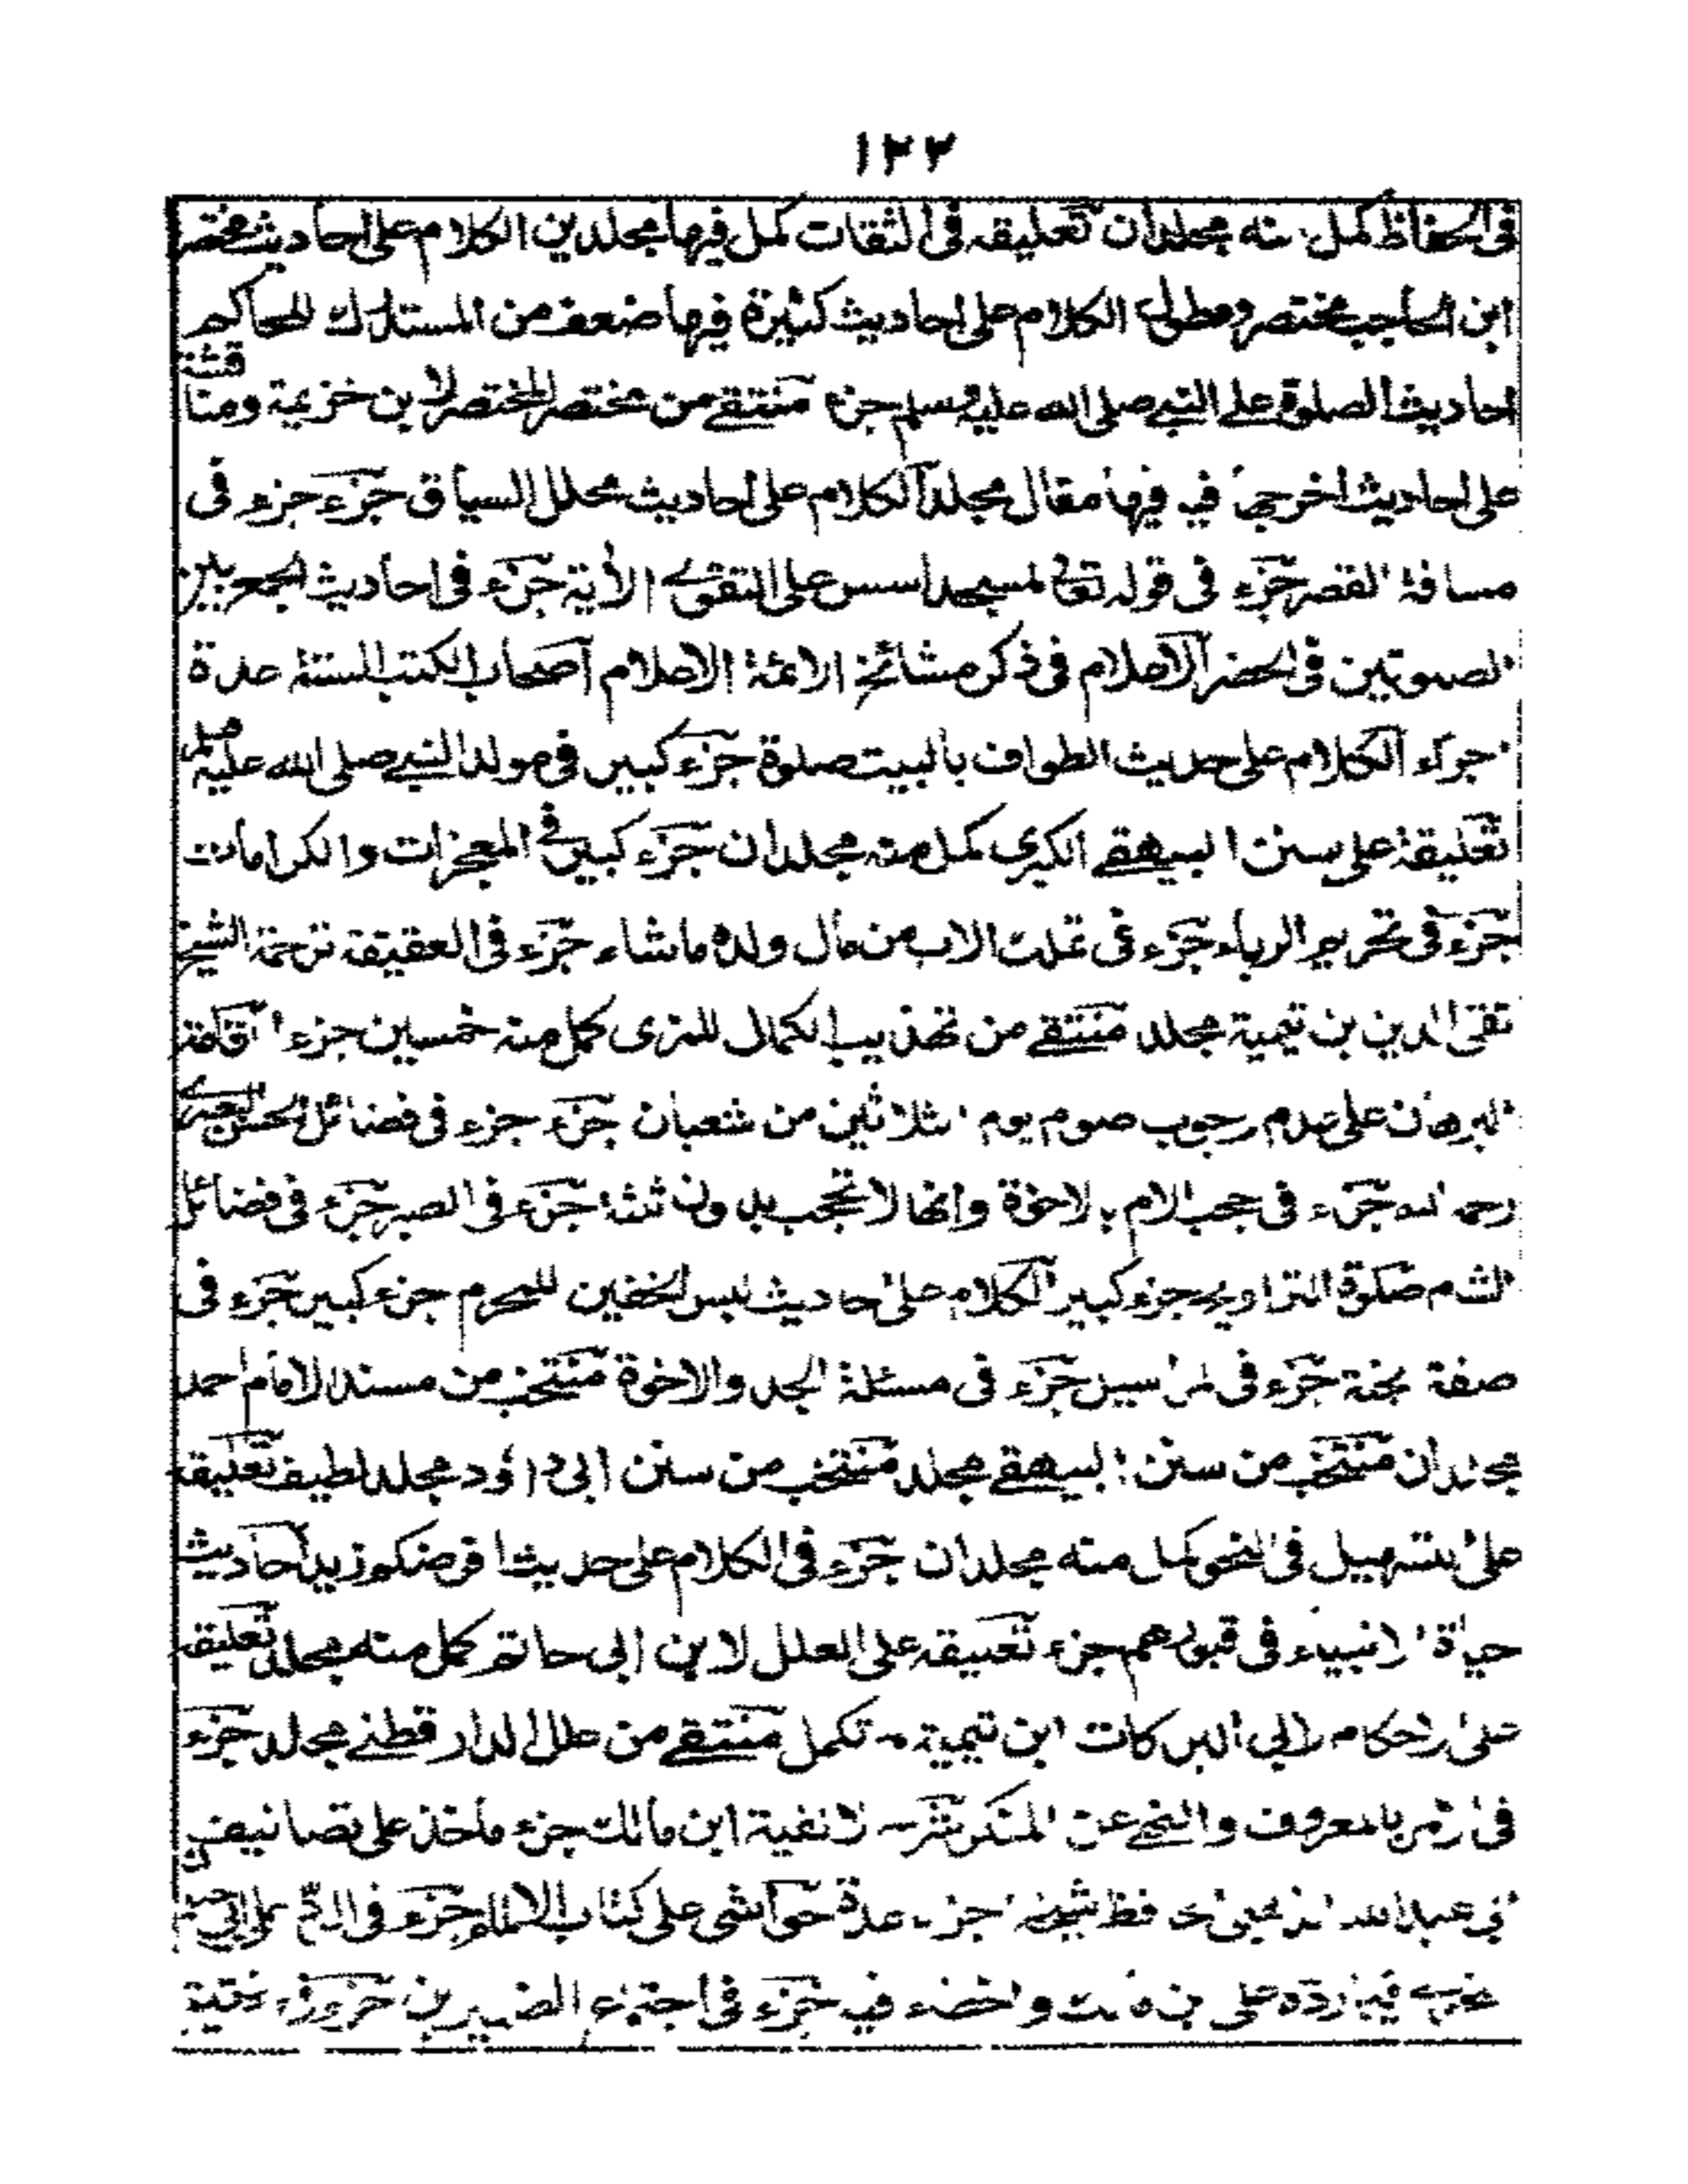 ١٢٢
فى الحفاظ كمل منه مجلدان تعليقه فى الثقات كمل فيها مجلدين الكلام على احاديث مختصر
ابن الحاجب مختصر ومطول الكلام على احاديث كثيرة فيها ضعف من المستدرك للحاكم
احاديث الصلوة على النبى صلى الله عليه وسلم جزء منتقے من مختصر المختصر لابن خزيمة ومناقشة
على احاديث اخرجها فيه فيها مقال مجلد الكلام على احاديث محلل السباق جزء جزء فى
مسافة القصر جزء فى قوله تعالى لمسجد اسس على التقوے الأية جزء فى احاديث الجمع بين
الصلوتين فى الحضر الاعلام فى ذكر مشائخ الائمة الاعلام اصحاب الكتب الستة عدة
اجزاء الكلام على حديث الطواف بالبيت صلوة جزء كبير فى مولد النبے صلى الله عليه وسلم
تعليقة على سنن البيهقے الكبرى كمل منه مجلدان جزء كبير فى المعجزات والكرامات
جزء فى تحريم الرباء جزء فى تملك الاب من مال ولده ماشاء جزء فى العقيقة ترجمة الشيخ
تقى الدين بن تيمية مجلد منتقے من تهذيب الكمال للمزى كمل منه خمسين جزء اقامة
البرهان على عدم وجوب صوم يوم الثلاثين من شعبان جزء جزء فى فضائل الحسن البصرے
رحمه الله جزء فى حجب الام بالاخوة وانها لا تحجب بدون ثلثة جزء فى الصبر جزء فى فضائل
الشام صلوة التراويح جزء كبير الكلام على احاديث لبس الخفين للمحرم جزء كبير جزء فى
صفة الجنة جزء فى المراسيل جزء فى مسئلة الجد والاخوة منتخب من مسند الامام احمد
مجلدان منتخب من سنن البيهقے مجلد منتخب من سنن ابى داؤد مجلد لطيف تعليقه
على التسهيل فى النحو كمل منه مجلدان جزء فى الكلام على حديث افرضكم زيد احاديث
حياة الانبياء فى قبورهم جزء تعليقه على العلل لابن ابى حاتم كمل منه مجلد تعليقه
على الاحكام لابى البركات ابن تيمية لم تكمل منتقے من علل الدارقطنے مجلد جزء
فى الامر بالمعروف والنهے عن المنكر شرح لالفية ابن مالك جزء مأخذ على تصانيف
ابى عبد الله الذهبى الحافظ شيخه اجزاء عدة حواشى على كتاب الالمام جزء فى الرد على ابى
فيما رده على بن واخطاء فيه جزء فى اجتماع الضميرين جزء فى